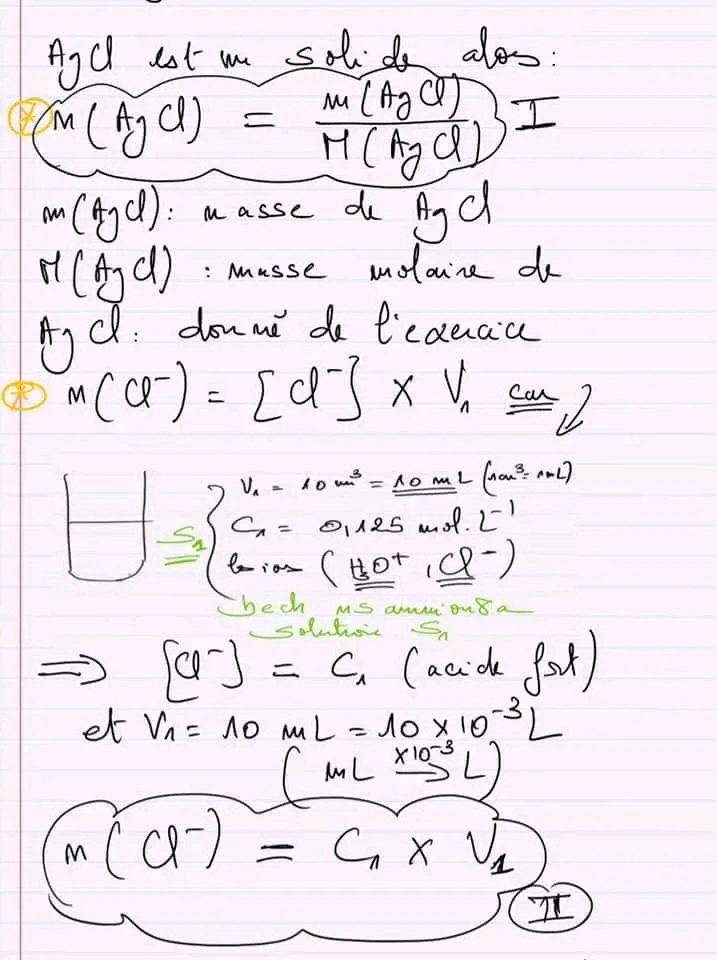 AgCl est un solide alors :
* n(AgCl) = m(AgCl) / M(AgCl) I
m(AgCl) : masse de AgCl
M(AgCl) : masse molaire de
AgCl : donné de l'exercice
* n(Cl⁻) = [Cl⁻] × V₁ car
V₁ = 10 cm³ = 10 mL (1cm³ = 1mL)
S₁ C₁ = 0,125 mol.L⁻¹
les ions (H₃O⁺, Cl⁻)
solution S₁
⇒ [Cl⁻] = C₁ (acide fort)
et V₁ = 10 mL = 10 × 10⁻³ L
(mL ×10⁻³→ L)
n(Cl⁻) = C₁ × V₁
II